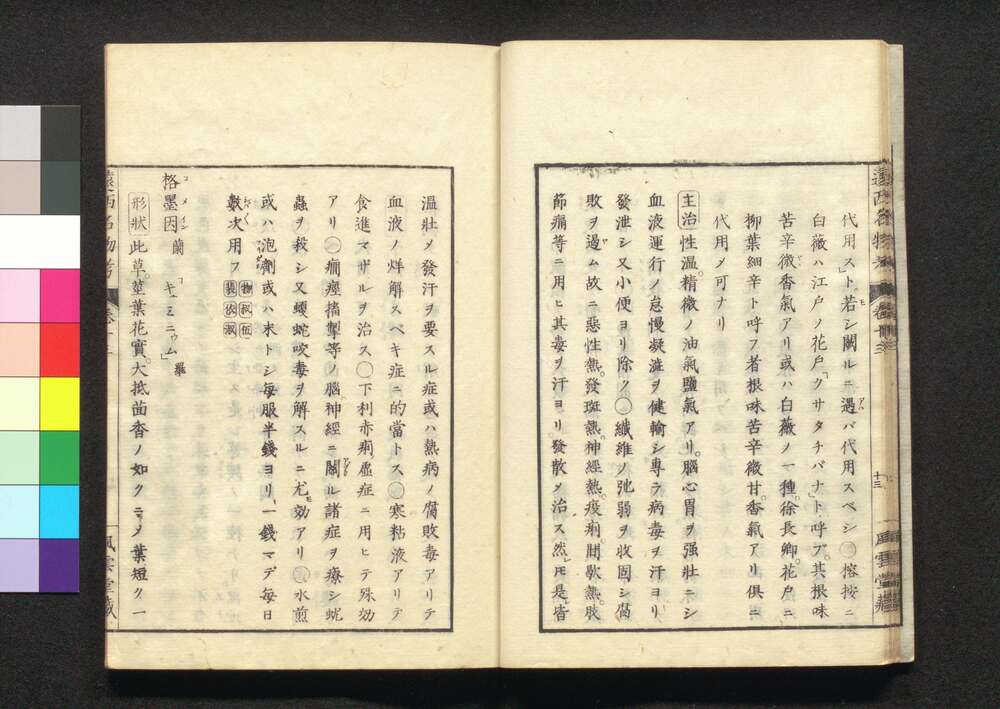 代用スト若シ闕ルニ遇バ代用スベシ○榕按ニ
白薇ハ江戸ノ花戸「クサタチバナ」ト呼ブ其根味
苦辛微香氣アリ或ハ白薇ノ一種徐長卿花戸ニ
柳葉細辛ト呼フ者根味苦辛微甘香氣アリ俱ニ
代用メ可ナリ
主治 性温精微ノ油氣鹽氣アリ腦心胃ヲ强壮ニシ
血液運行ノ怠慢凝澁ヲ健輸シ專ラ病毒ヲ汗ヨリ
發泄シ又小便ヨリ除ク○纎維ノ弛弱ヲ收固シ腐
敗ヲ遏ム故ニ惡性熱發斑熱神經熱疫痢間歇熱肢
節痛等ニ用ヒ其毒ヲ汗ヨリ發散メ治ス然𪜈是皆
十三 風雲堂藏
温壮メ發汗ヲ要スル症或ハ熱病ノ腐敗毒アリテ
血液ノ烊解スベキ症ニ的當トス○寒粘液アリテ
食進マザルヲ治ス○下利赤痢虚症ニ用ヒテ殊効
アリ○癇癭搐掣等ノ腦神經ニ關ル諸症ヲ療シ蚘
蟲ヲ殺シ又蝮蛇咬毒ヲ解スルニ尤効アリ○水煎
或ハ泡劑或ハ末トシ每服半錢ヨリ一錢マデ每日
數次用フ
格墨因 蘭「キュミニウム」羅
形狀 此草莖葉花實大抵茴香ノ如クニメ葉短ク一
遠西名物考 風雲堂藏